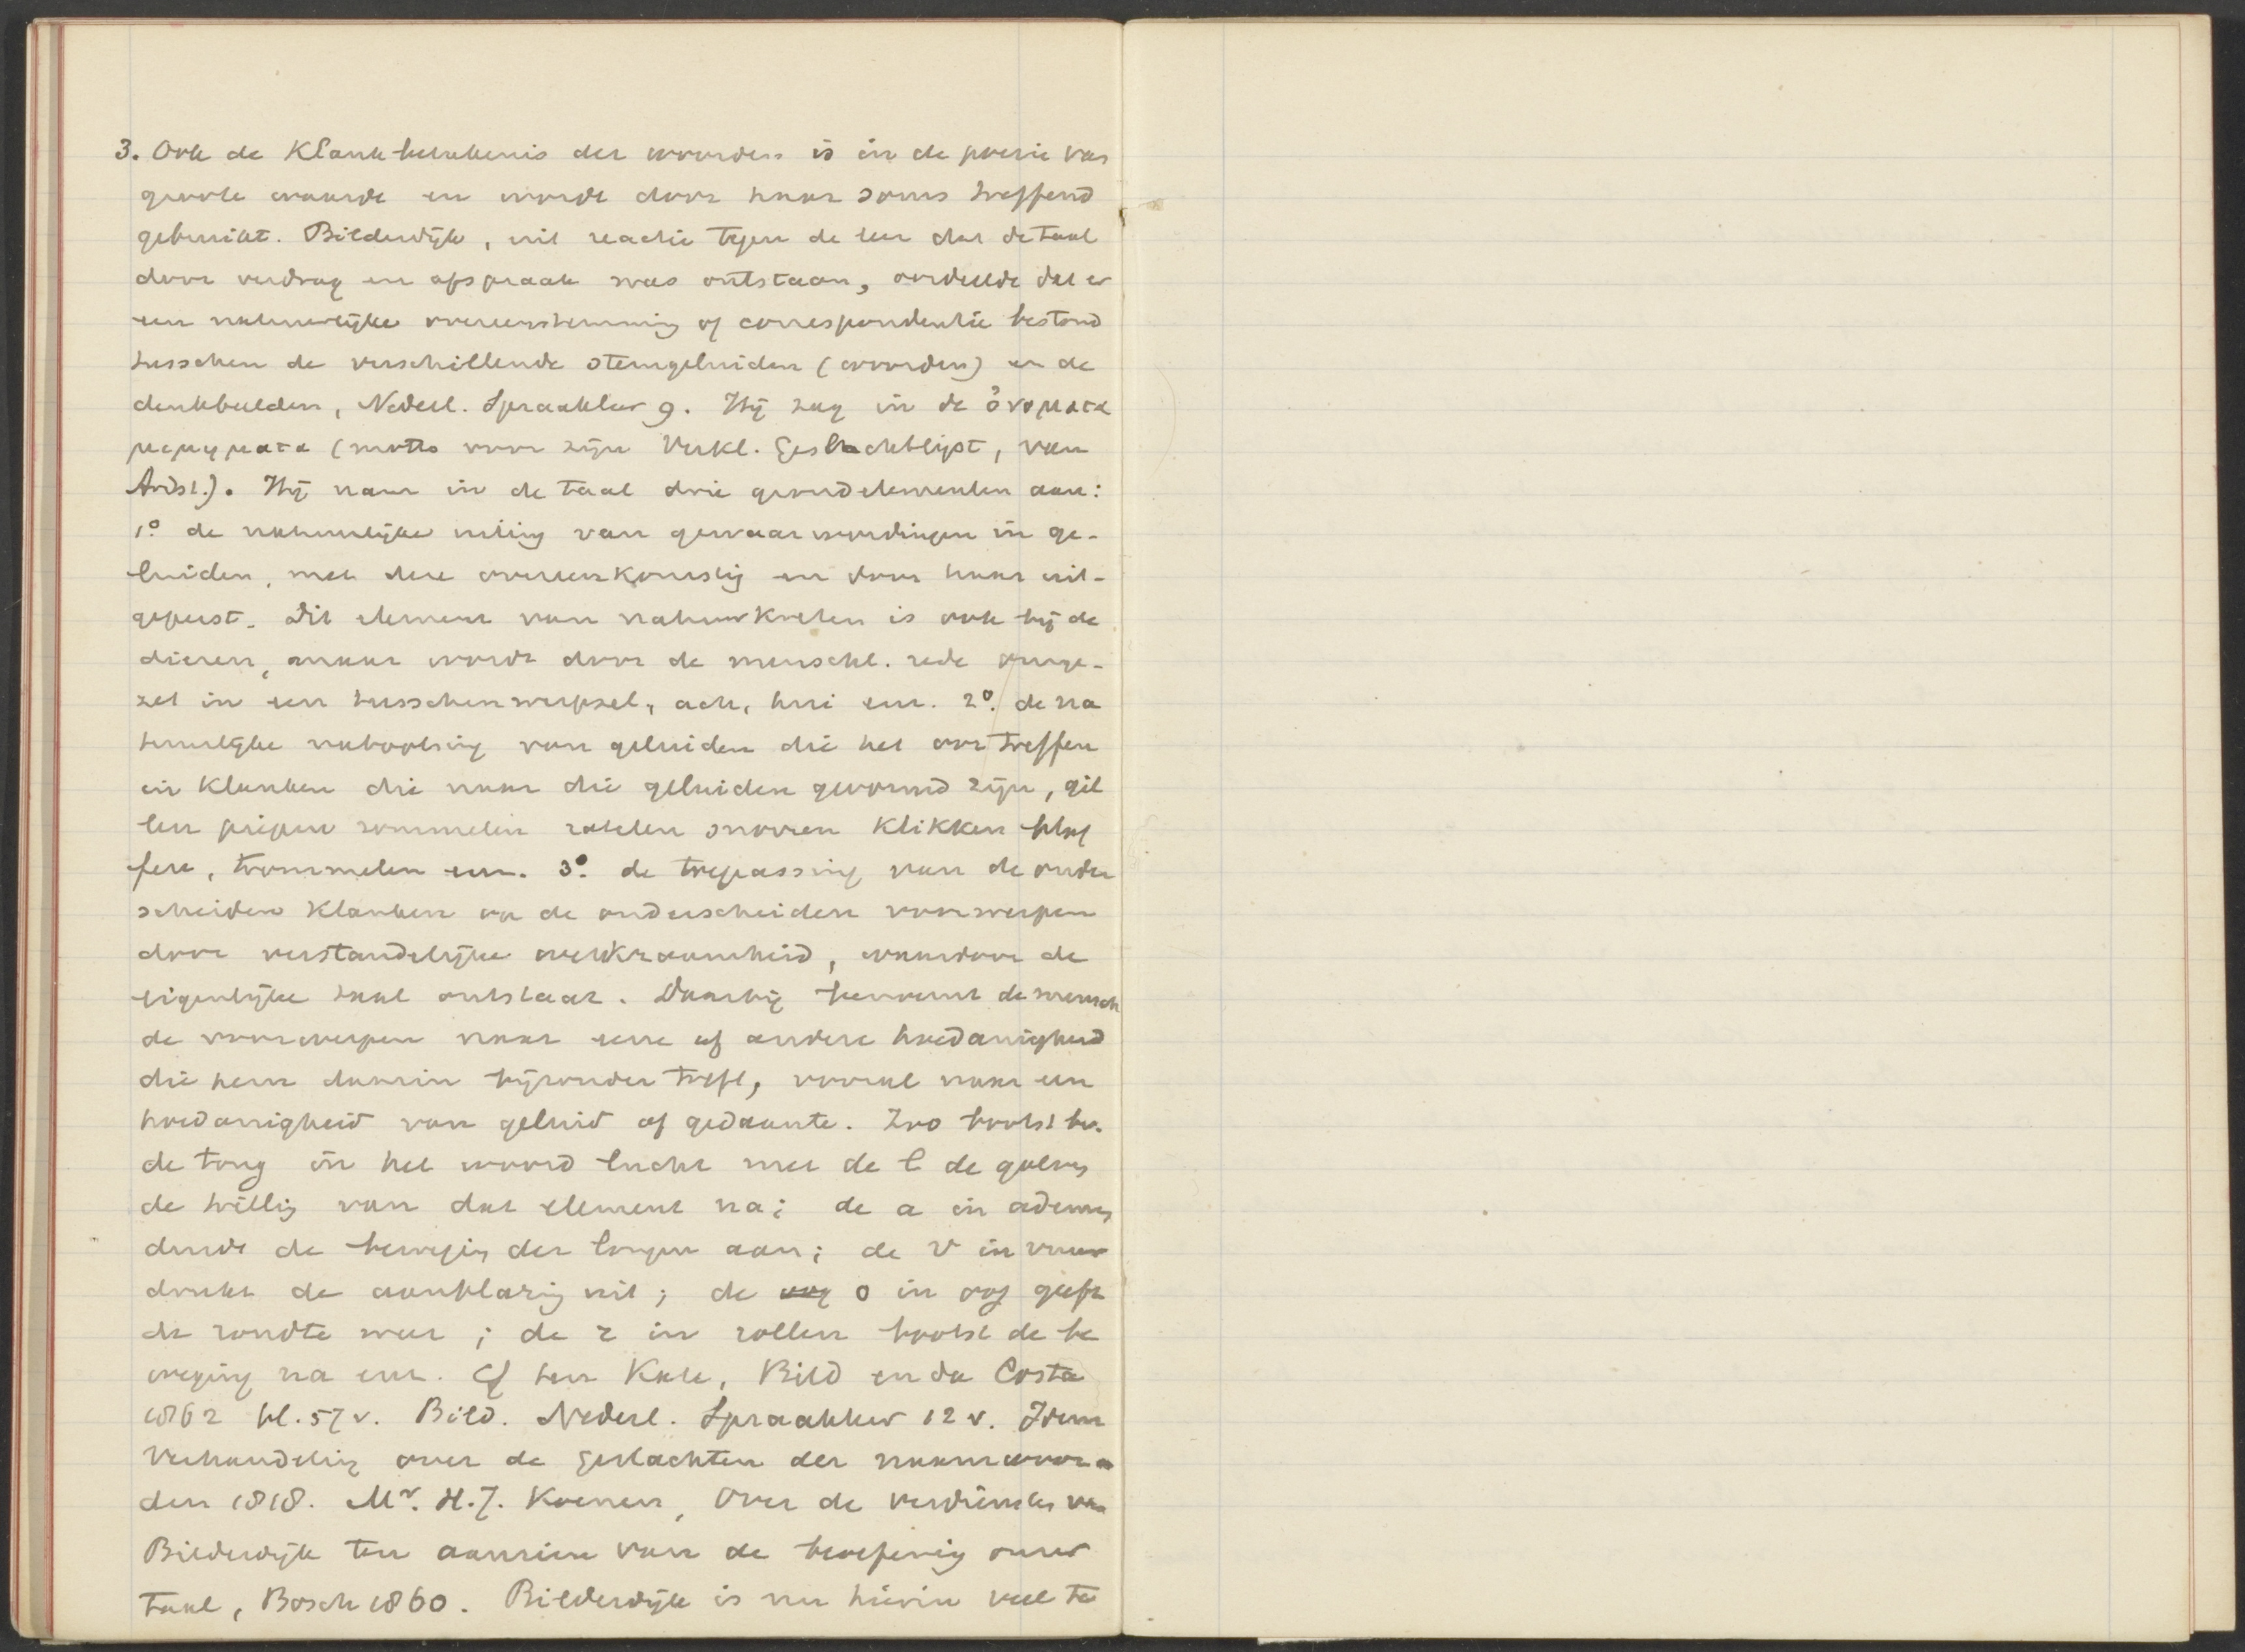 3. Ook de Klankbeteekenis der woorden is in de poezie van
groote waarde en wordt door haar soms treffend
gebruikt. Bilderdijk, uit reactie tegen de leer dat de taal
door verdrag en afspraak was ontstaan, oordeelde dat er
een natuurlijke overeenstemming of correspondentie bestond
tusschen de verschillende stemgeluiden (woorden) en de
denkbeelden, Nederl. Spraakleer 9. Hij zag in de ὀνοματα
μιμηματα (motto voor zijn Verkl. Geslachtlijst, van
Arist.). Hij nam in de taal drie grondelementen aan:
1º de natuurlijke uiting van gewaarwordingen in ge-
luiden, met deze overeenkomstig en door haar uit-
geperst. Dit element van natuurkreten is ook bij de
dieren, maar wordt door de menschl. rede omge-
zet in een tusschenwerpsel, ach, hui enz. 2º. de na
tuurlijke nabootsing van geluiden die het oor treffen
in klanken die naar die geluiden gevormd zijn, gil
len pijpen rommelen ratelen snorren klikken blaf
fen, trommelen enz. 3º. de toepassing van de onder
scheiden klanken op de onderscheiden voorwerpen
door verstandelijke werkzaamheid, waardoor de
eigenlijke taal ontstaat. Daarbij benoemt de mensch
de voorwerpen naar eene of andere hoedanigheid
die hem daarin bijzonder treft, vooral naar een
hoedanigheid van geluid of gedaante. Zoo bootst bv.
de tong in het woord lucht met de l de golven
de trilling van dat element na; de a in adem
duidt de beweging der longen aan; de v in vuur
drukt de aanblazing uit; de o in oog geeft
de rondte weer; de r in rollen bootst de be
weging na enz. Cf ten Kate, Bild en da Costa
1862 bl. 57 v. Bild. Nederl. Spraakleer 12 v. Idem
Verhandeling over de geslachten der naamwoor
den 1818. Mr. H.J. Koenen, Over de verdiensten van
Bilderdijk ten aanzien van de beoefening onzer
taal, Bosch 1860. Bilderdijk is nu hierin veel te